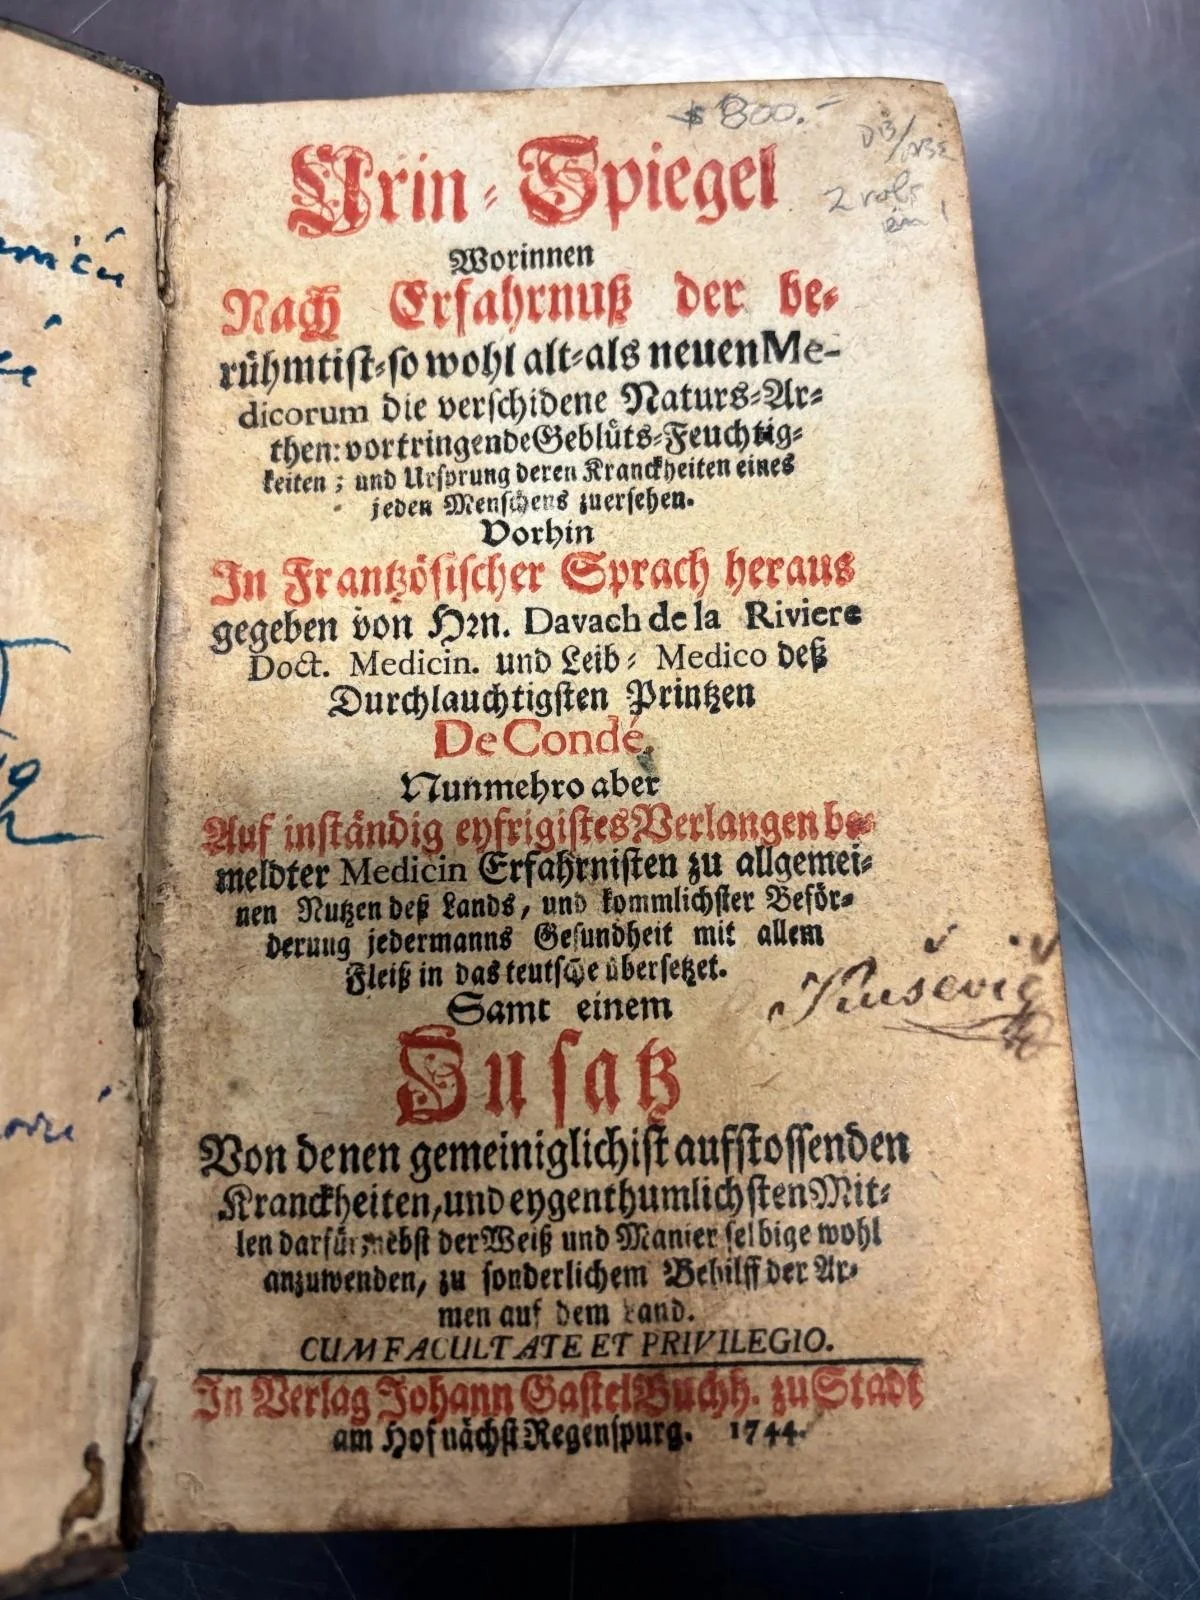 $ 800.-
2 vols
in 1
Urin-Spiegel
Worinnen
Nach Erfahrnuß der be-
rühmtist-so wohl alt-als neuen Me-
dicorum die verschidene Naturs-Ar-
then: vortringende Geblüts-Feuchtig-
keiten; und Ursprung deren Kranckheiten eines
jeden Menschens zuersehen.
Vorhin
In Frantzösischer Sprach heraus
gegeben von Hrn. Davach de la Riviere
Doct. Medicin. und Leib-Medico deß
Durchlauchtigsten Printzen
De Condé,
Nunmehro aber
Auf inständig eyfrigistes Verlangen be-
meldter Medicin Erfahrnisten zu allgemei-
nen Nutzen deß Lands, und kommlichster Beför-
derung jedermanns Gesundheit mit allem
Fleiß in das teutsche übersetzet.
Samt einem
Zusatz
Von denen gemeiniglichist aufstossenden
Kranckheiten, und eygenthumlichsten Mit-
len darfür, nebst der Weiß und Manier selbige wohl
anzuwenden, zu sonderlichem Behilff der Ar-
men auf dem Land.
CUM FACULTATE ET PRIVILEGIO.
In Verlag Johann Gastel Buchh. zu Stadt
am Hof nächst Regenspurg. 1744.